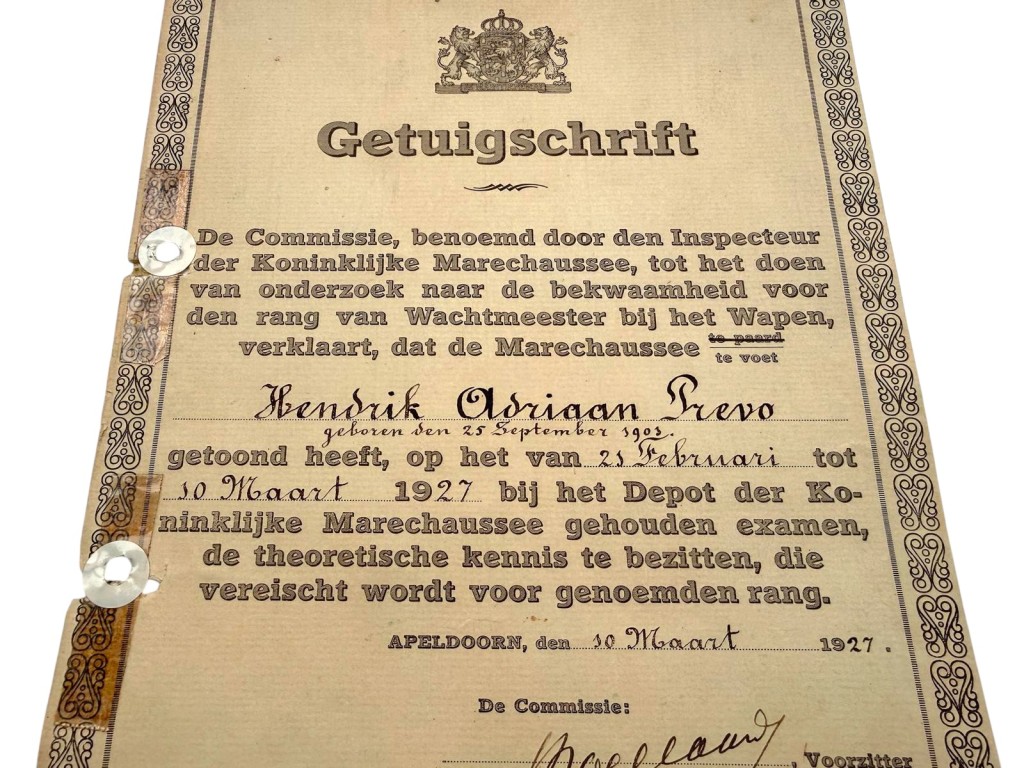 Getuigschrift
De Commissie, benoemd door den Inspecteur
der Koninklijke Marechaussee, tot het doen
van onderzoek naar de bekwaamheid voor
den rang van Wachtmeester bij het Wapen,
verklaart, dat de Marechaussee te paard
te voet
Hendrik Adriaan Prevo
geboren den 25 September 1903.
getoond heeft, op het van 21 Februari tot
10 Maart 1927 bij het Depot der Ko-
ninklijke Marechaussee gehouden examen,
de theoretische kennis te bezitten, die
vereischt wordt voor genoemden rang.
APELDOORN, den 10 Maart 1927.
De Commissie:
, Voorzitter